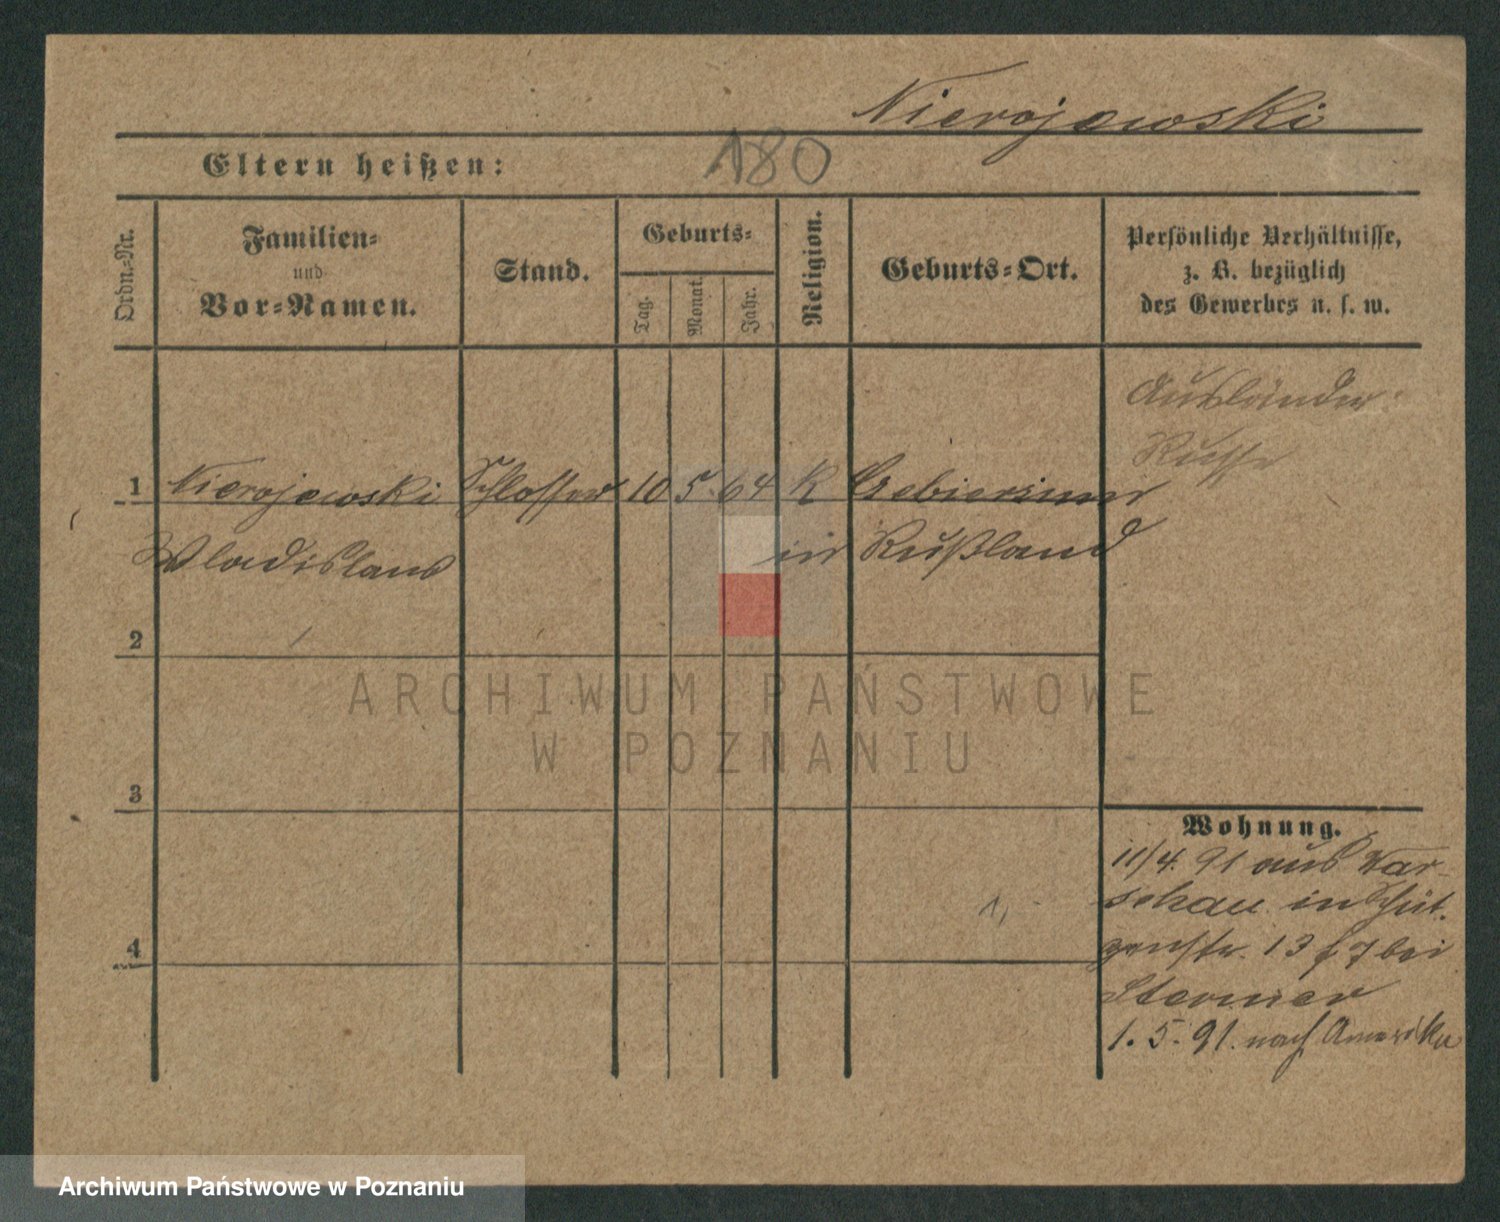 Nierojewski
Eltern heißen:
180
Ordn.-Nr.
Familien-
und
Vor-Namen.
Stand.
Geburts-
Tag.
Monat.
Jahr.
Religion.
Geburts-Ort.
Persönliche Verhältnisse,
z. B. bezüglich
des Gewerbes u. s. w.
Ausländer
Russe
1 Nierojewski Schlosser 10 5. 64 K
Wladislaus in Rußland
2
ARCHIWUM PAŃSTWOWE
W POZNANIU
3
Wohnung.
11/4. 91 aus War-
schau in Schüt-
zenstr. 13 bei
4
1. 5. 91. nach Amerika
Archiwum Państwowe w Poznaniu